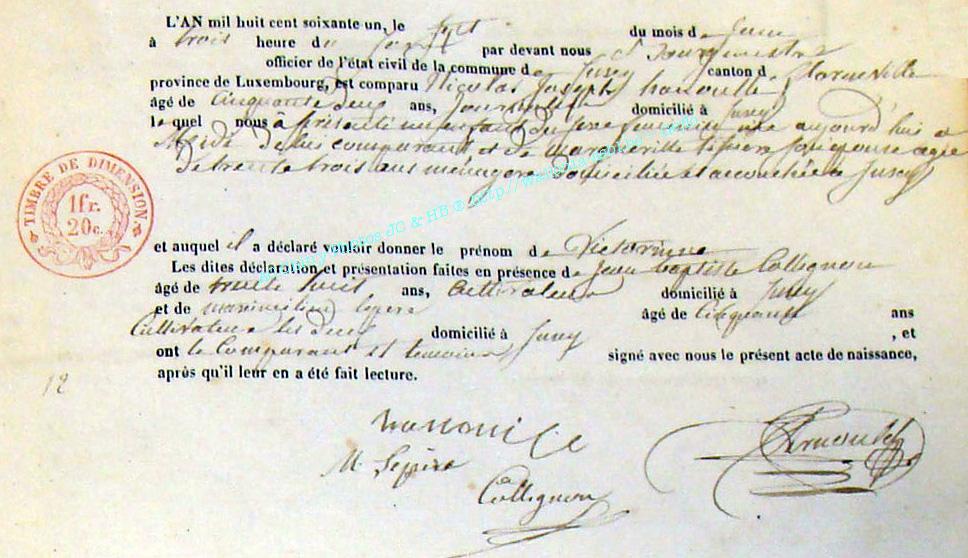 L'AN mil huit cent soixante un, le sept du mois de Juin
à trois heure du par devant nous Bourgmestre
officier de l'état civil de la commune de Juseret canton d
province de Luxembourg, est comparu Nicolas Joseph hanouille
âgé de Cinquante deux ans, Journalier domicilié à
le quel nous à présenté un enfant du sexe feminin née aujourd'hui a
Midi de lui comparant et de Marguerite son epouse agée
de trente trois ans ménagère domiciliée et accouchée a
TIMBRE DE DIMENSION
1 fr.
20 c.
et auquel il a déclaré vouloir donner le prénom de Victorinne
Les dites déclaration et présentation faites en présence de Jean baptiste Collignon
âgé de trente huit ans, Cultivateur domicilié à
et de maximilien lepere âgé de Cinquante ans
Cultivateur les deux domicilié à , et
ont le Comparant et temoins signé avec nous le présent acte de naissance,
après qu'il leur en a été fait lecture.
12
hanouille
M. Lepère
Collignon